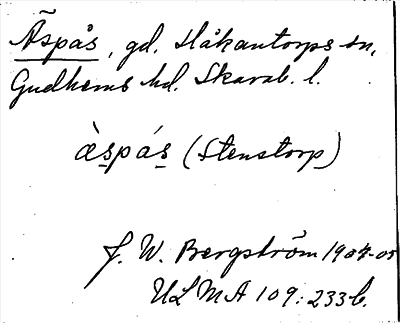 Äspås, gd. Håkantorps sn,
Gudhems hd. Skarab. l.
àspás (Stenstorp)
J. W. Bergström 1904-05
ULMA 109: 233b.